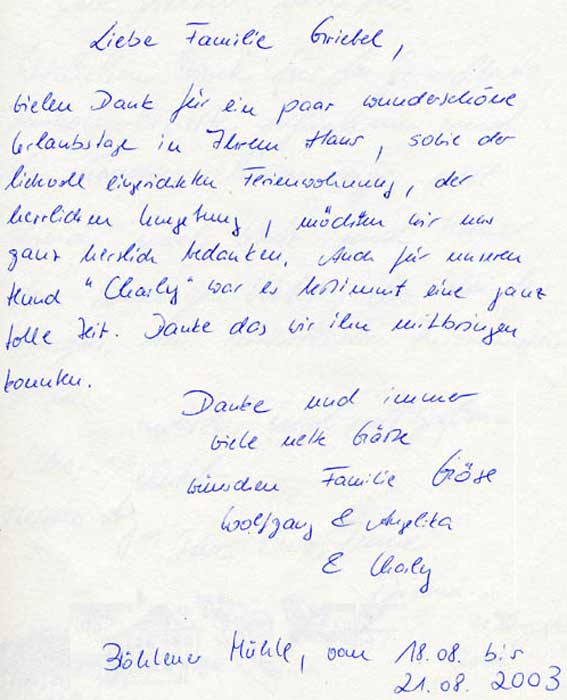 Liebe Familie Griebel,
vielen Dank für ein paar wunderschöne
Urlaubstage in Ihrem Haus, sowie der
liebevoll eingerichteten Ferienwohnung, der
herrlichen Umgebung, möchten wir uns
ganz herzlich bedanken. Auch für unseren
Hund "Charly" war es bestimmt eine ganz
tolle Zeit. Danke das wir ihn mitbringen
konnten.
Danke und immer
viele nette Gäste
wünschen Familie
Wolfgang & Angelika
& Charly
Böhlener Mühle, vom 18.08. bis
21.08. 2003